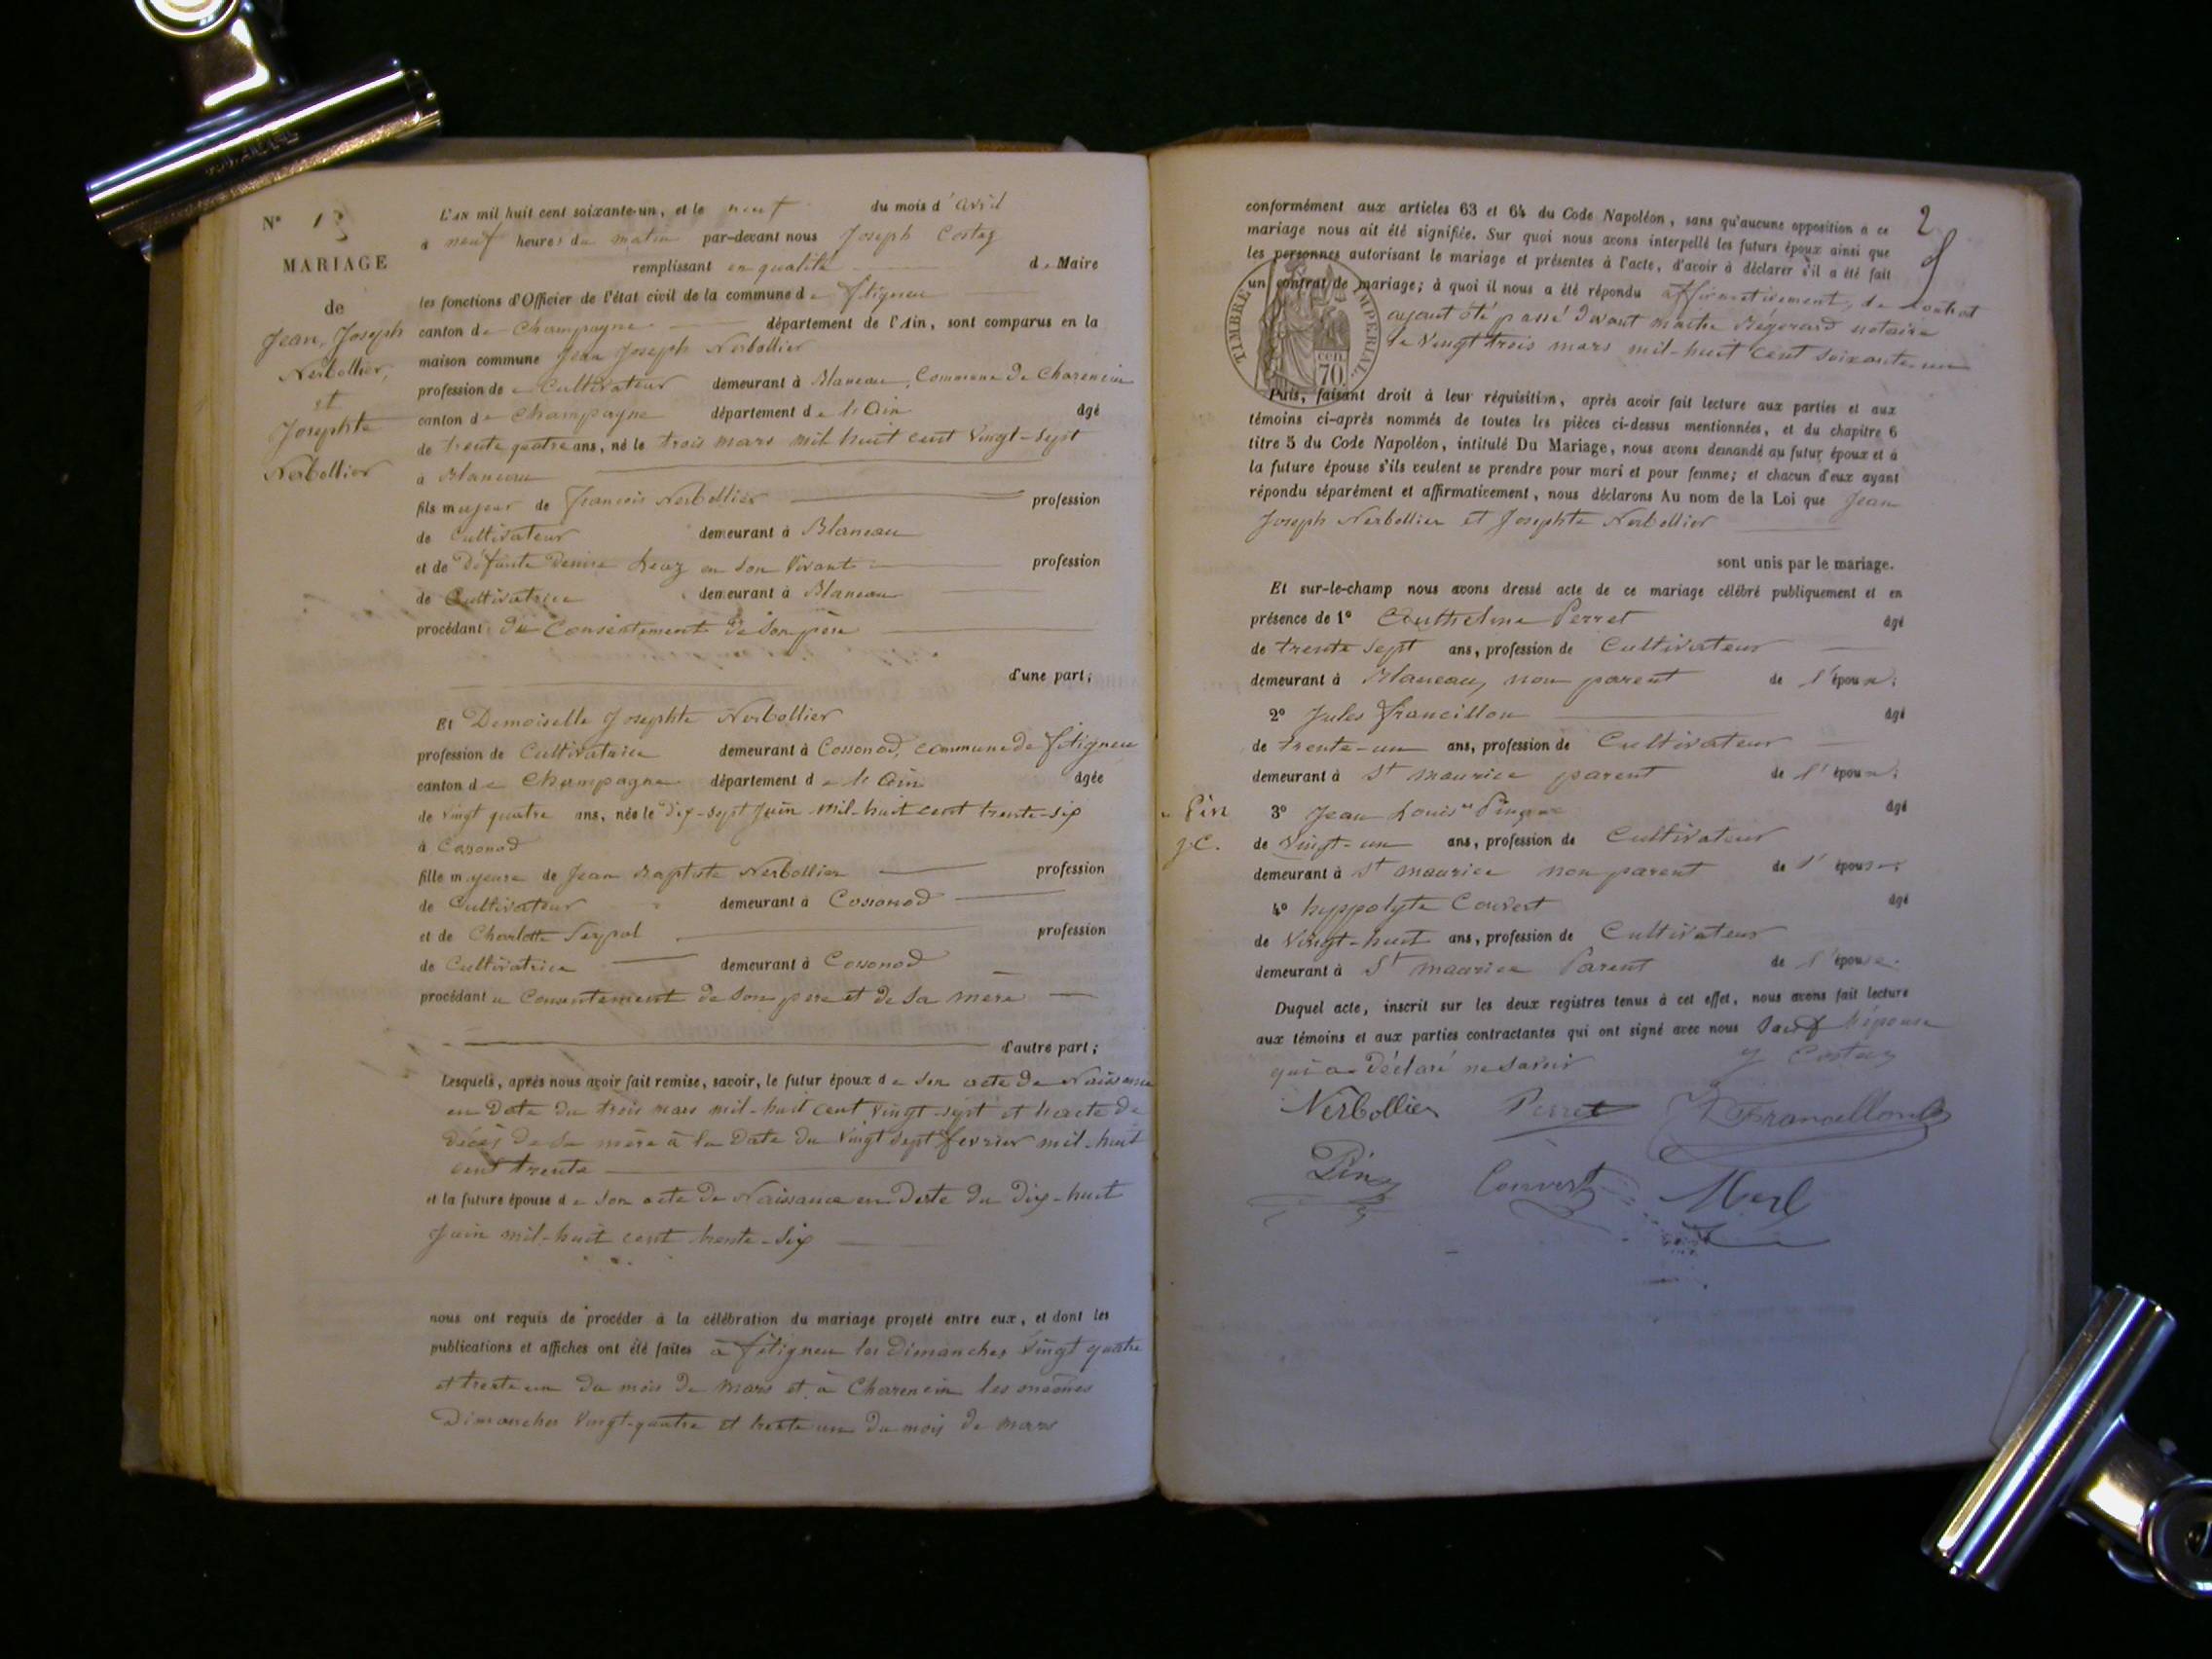 N°
MARIAGE
de
Jean, Joseph
Nerbollier,
et
Josephte
Nerbollier
L'AN mil huit cent soixante-un, et le neuf du mois d'avril
à neuf heures du matin par-devant nous Joseph Costaz
remplissant en qualité de Maire
les fonctions d'Officier de l'état civil de la commune de fitignieu
canton de Champagne département de l'Ain, sont comparus en la
maison commune Jean Joseph Nerbollier
profession de Cultivateur demeurant à Blanaau, Commune de Charencin
canton de Champagne département de l'Ain âgé
de trente quatre ans, né le trois mars mil huit cent vingt-sept
à Blanaau
fils majeur de francois Nerbollier profession
de Cultivateur demeurant à Blanaau
et de Défunte Denise en son vivant profession
de Cultivatrice demeurant à Blanaau
procédant du Consentement de son père
d'une part;
Et Demoiselle Josephte Nerbollier
profession de Cultivatrice demeurant à Cossonod, commune de fitignieu
canton de Champagne département de l'Ain âgée
de vingt quatre ans, née le dix-sept juin mil-huit cent trente-six
à Cosonod
fille majeure de Jean Baptiste Nerbollier profession
de Cultivateur demeurant à Cossonod
et de Charlotte Serpol profession
de Cultivatrice demeurant à Cossonod
procédant u Consentement de son pere et de sa mere
d'autre part;
Lesquels, après nous avoir fait remise, savoir, le futur époux de son acte de Naissance
en date du trois mars mil-huit cent vingt-sept et l'acte de
décès de sa mère à la date du vingt sept fevrier mil-huit
cent trente
et la future épouse de son acte de Naissance en date du dix-huit
juin mil-huit cent trente-six
nous ont requis de procéder à la célébration du mariage projeté entre eux, et dont les
publications et affiches ont été faites à fitignieu les dimanches vingt quatre
et trente un du mois de mars et à Charencin les mêmes
dimanches vingt-quatre et trente un du mois de mars
2
conformément aux articles 63 et 64 du Code Napoléon, sans qu'aucune opposition à ce
mariage nous ait été signifiée. Sur quoi nous avons interpellé les futurs époux ainsi que
les personnes autorisant le mariage et présentes à l'acte, d'avoir à déclarer s'il a été fait
un contrat de mariage; à quoi il nous a été répondu affirmativement, de contrat
ayant été passé devant maitre notaire
le vingt trois mars mil-huit cent soixante-un
TIMBRE IMPERIAL
70 cen.
Puis, faisant droit à leur réquisition, après avoir fait lecture aux parties et aux
témoins ci-après nommés de toutes les pièces ci-dessus mentionnées, et du chapitre 6
titre 5 du Code Napoléon, intitulé Du Mariage, nous avons demandé au futur époux et à
la future épouse s'ils veulent se prendre pour mari et pour femme; et chacun d'eux ayant
répondu séparément et affirmativement, nous déclarons Au nom de la Loi que Jean
Joseph Nerbollier et Josephte Nerbollier
sont unis par le mariage.
Et sur-le-champ nous avons dressé acte de ce mariage célébré publiquement et en
présence de 1° Anthelme Perret âgé
de trente sept ans, profession de Cultivateur
demeurant à Blanaau, non parent de l'époux;
2° Jules francillon âgé
de trente-un ans, profession de Cultivateur
demeurant à St maurice parent de l'épou ;
Pin
J.C.
3° Jean Louis âgé
de vingt-un ans, profession de Cultivateur
demeurant à St maurice non parent de l'épouse;
4° hyppolyte Couvert âgé
de vingt-huit ans, profession de Cultivateur
demeurant à St maurice Parent de l'épouse.
Duquel acte, inscrit sur les deux registres tenus à cet effet, nous avons fait lecture
aux témoins et aux parties contractantes qui ont signé avec nous sauf l'épouse
qui a déclaré ne savoir J Costaz
Nerbollier Perret J Francillon
Pin Couvert Merl